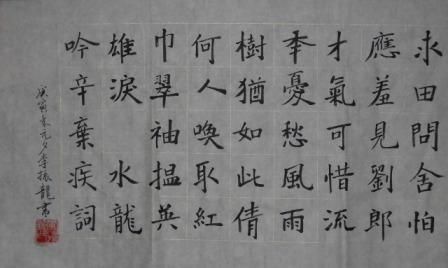 求田問舍怕
應羞見劉郎
才氣可惜流
秊憂愁風雨
樹猶如此倩
何人喚取紅
巾翠袖搵英
雄淚 水龍
吟辛棄疾詞
庚寅年元夕李振龍書